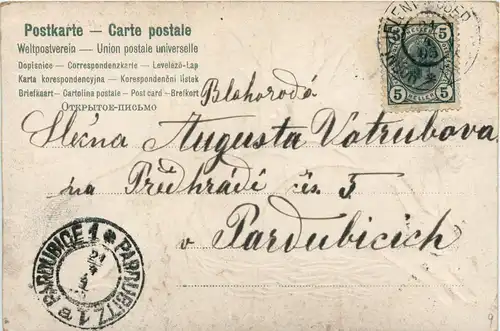 Postkarte — Carte postale
Weltpostverein — Union postale universelle
Dopisnice — Correspondenzkarte — Levelező-Lap
Karta korespondencyjna — Korespondenčni listek
Briefkaart — Cartolina postale — Post card — Brefkort
ОТКРЫТОЕ-ПИСЬМО
5 5
HELLER HELLER
5 5
Blahorodá
Slečna Augusta Votrubova
na Předhrádí čís. 5
v Pardubicích
PARDUBICE 1 * PARDUBITZ 1